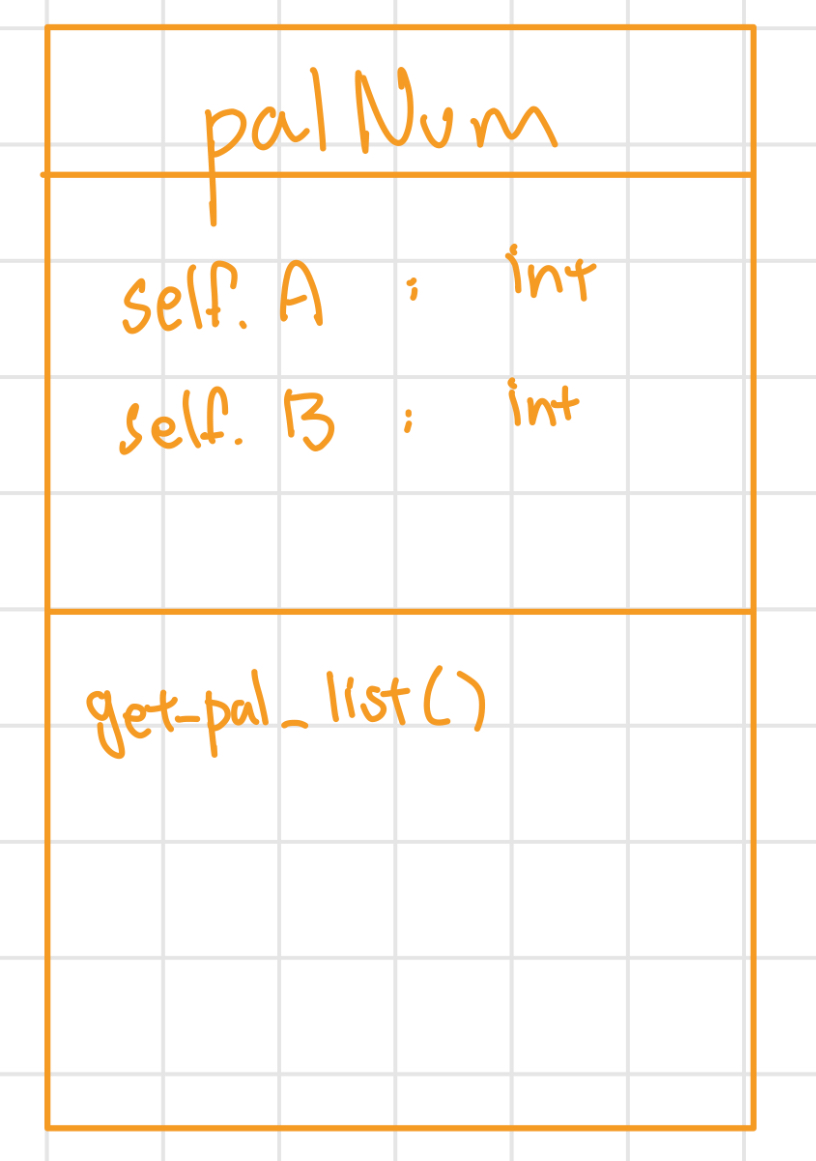 palNum
self.A : int
self.B : int
get_pal_list()